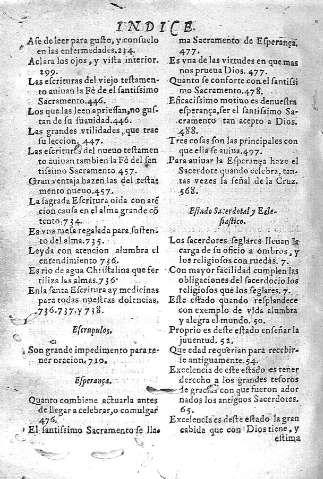 INDICE.
Ase de leer para gusto, y consuelo
en las enfermedades. 234.
Aclara los ojos, y vista interior.
299.
Las escrituras del viejo testamen
to auiuan la Fê de el santissimo
Sacramento. 446.
Los que las leen apriessa, no gus
tan de su suauidad. 446.
Las grandes vtilidades, que trae
su leccion. 447.
Las escrituras del nueuo testamen
to auiuan tambien la Fê del san
tissimo Sacramento 457.
Gran ventaja hazen las del testa
mento nueuo. 457.
La sagrada Escritura oida con aten
cion causa en el alma grande cõ
tento. 734.
Es vna mesa regalada para susten
to del alma. 735.
Leyda con atencion alumbra el
entendimiento 736.
Es rio de agua Christalina que fer
tiliza las almas. 736.
En la santa Escritura ay medicinas
para todas nuestras dolencias.
736. 737. y 738.
Escrupulos.
Son grande impedimento para te-
ner oracion. 710.
Esperança.
Quanto combiene actuarla antes
de llegar a celebrar, o comulgar
476.
El santissimo Sacramento se lla-
ma Sacramento de Esperança.
477.
Es vna de las virtudes en que mas
nos prueua Dios. 477.
Quanto se conforte con el santissi
mo Sacramento. 478.
Eficacissimo motiuo es de nuestra
esperança, ser el santissimo Sa-
cramento tan acepto a Dios.
488.
Tres cosas son las principales con
que ella se auiua. 497.
Para auiuar la Esperança haze el
Sacerdote quando celebra, tan-
tas vezes la señal de la Cruz.
568.
Estado Sacerdotal y Ecle-
siastico.
Los sacerdotes seglares lleuan la
carga de su oficio a ombros, y
los religiosos con ruedas. 7.
Con mayor facilidad cumplen las
obligaciones del sacerdocio los
religiosos que los seglares. 7.
Este estado quando resplandece
con exemplo de vida alumbra
y alegra el mundo. 50.
Proprio es deste estado enseñar la
juuentud. 52.
Que edad requerian para recebir-
le antiguamente. 54.
Excelencia de este estado es tener
derecho a los grandes tesoros
de gracias con que fueron ador
nados los antiguos Sacerdotes.
65.
Excelencia es deste estado la gran
cabida que con Dios tiene, y
estima